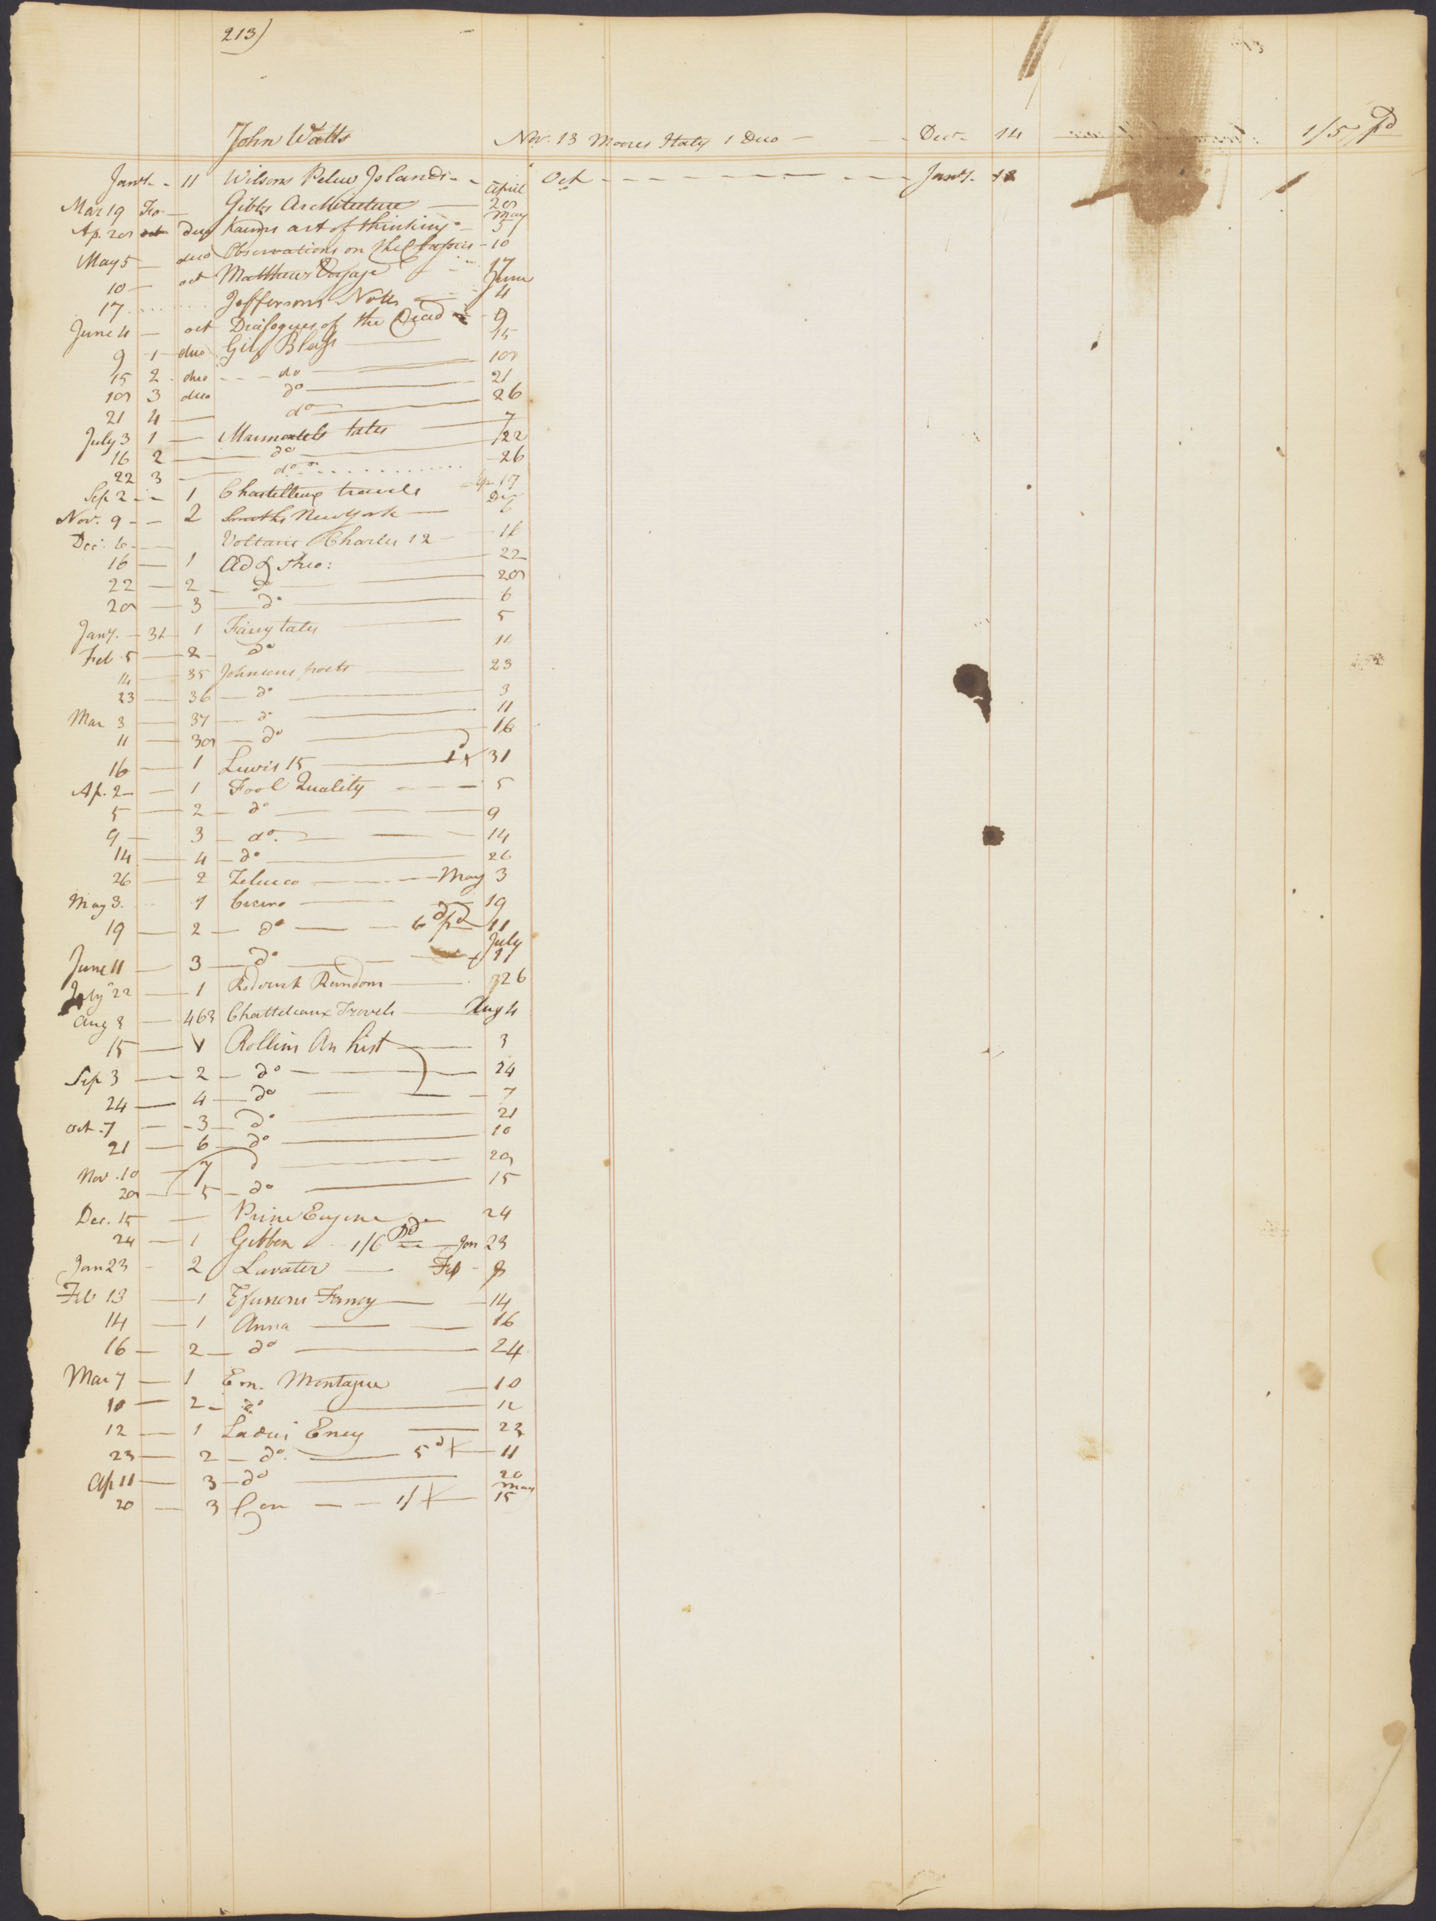 213)
John Watts Nov. 13 Moores Italy 1 Duo — Dec. 14 1/5 pd
Jany. - 11 Wilsons Pelew Islands - - Oct - - - Jany. 12
Mar 19 Fo — Gibbs Architecture — April 28
Ap. 28 oct duo Kaims art of thinking — May 5
May 5 — duo Observations on the - 10
10 — oct Matthews Voyage 17
17 Jeffersons Notes June 4
June 4 — oct Dialogues of the Dead - 9
9 1 duo Gil Blass — 15
15 2 duo - - - do — 18
18 3 duo do — 21
21 4 — do — 26
July 3 1 — Marmontels tales — 7
16 2 — do — 22
22 3 — do - 26
Sep 2 - - 1 Chastelleux travels - Sep 17
Nov. 9 - - 2 Smiths New York — Dec 6
Dec. 6 - Voltaires Charles 12 — 16
16 — 1 Ad & Theo: — 22
22 — 2 — do — 28
28 — 3 — do — 6
Jany. - 31 1 Fairy tales — 5
Feb. 5 — 2 - do 14
14 — 35 Johnsons poets — 23
23 — 36 — do — 3
Mar 3 — 37 — do — 11
11 — 38 — do — 16
16 — 1 Lewis 15 — 31
Ap. 2 — 1 Fool Quality - - - 5
5 — 2 - do — 9
9 — 3 — do. — 14
14 — 4 — do — 26
26 — 2 Zeluco — May 3
May 3. - 1 Cicero — 19
19 — 2 — do — 6d pd — 11
June 11 — 3 — do — July
July 22 — 1 Roderick Random — 26
Aug 3 — 463 Chattelleaux Travels — Aug 4
15 — 1 Rollins An hist — 3
Sep 3 — 2 — do — 24
24 — 4 — do — 7
Oct. 7 — 3 — do — 21
21 — 6 — do — 10
Nov. 10 — 7 do — 28
28 — 5 — do — 15
Dec. 15 — Prince Eugene — 24
24 — 1 Gibbon - 1/6 Pd — Jan 23
Jan 23 - 2 Lavater — Feb - 8
Feb 13 — 1 Fancy — 14
14 — 1 Anna — 16
16 — 2 — do — 24
Mar 7 — 1 Em. Montague — 10
10 — 2 - do — 12
12 — 1 Ladies Ency — 23
23 — 2 — do. — 5d — 11
Ap 11 — 3 — do — 20
20 — 3 — 1/ — May 15